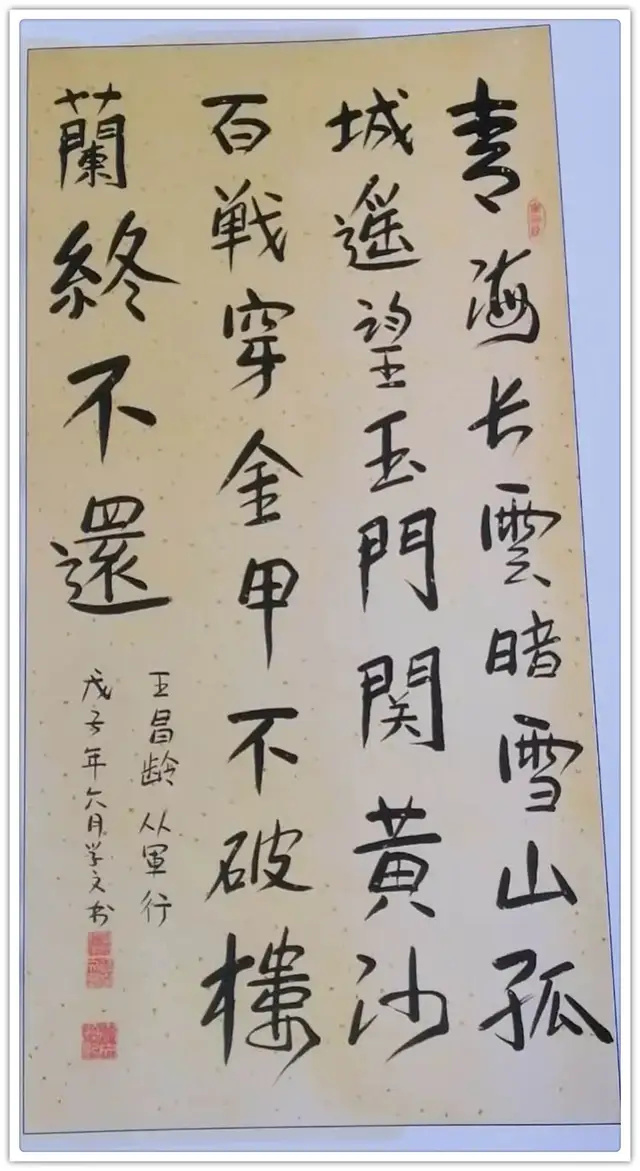 青海长雲暗雪山孤
城遥望玉門関黄沙
百戦穿金甲不破樓
蘭終不還
王昌龄从軍行
戊子年六月学文书